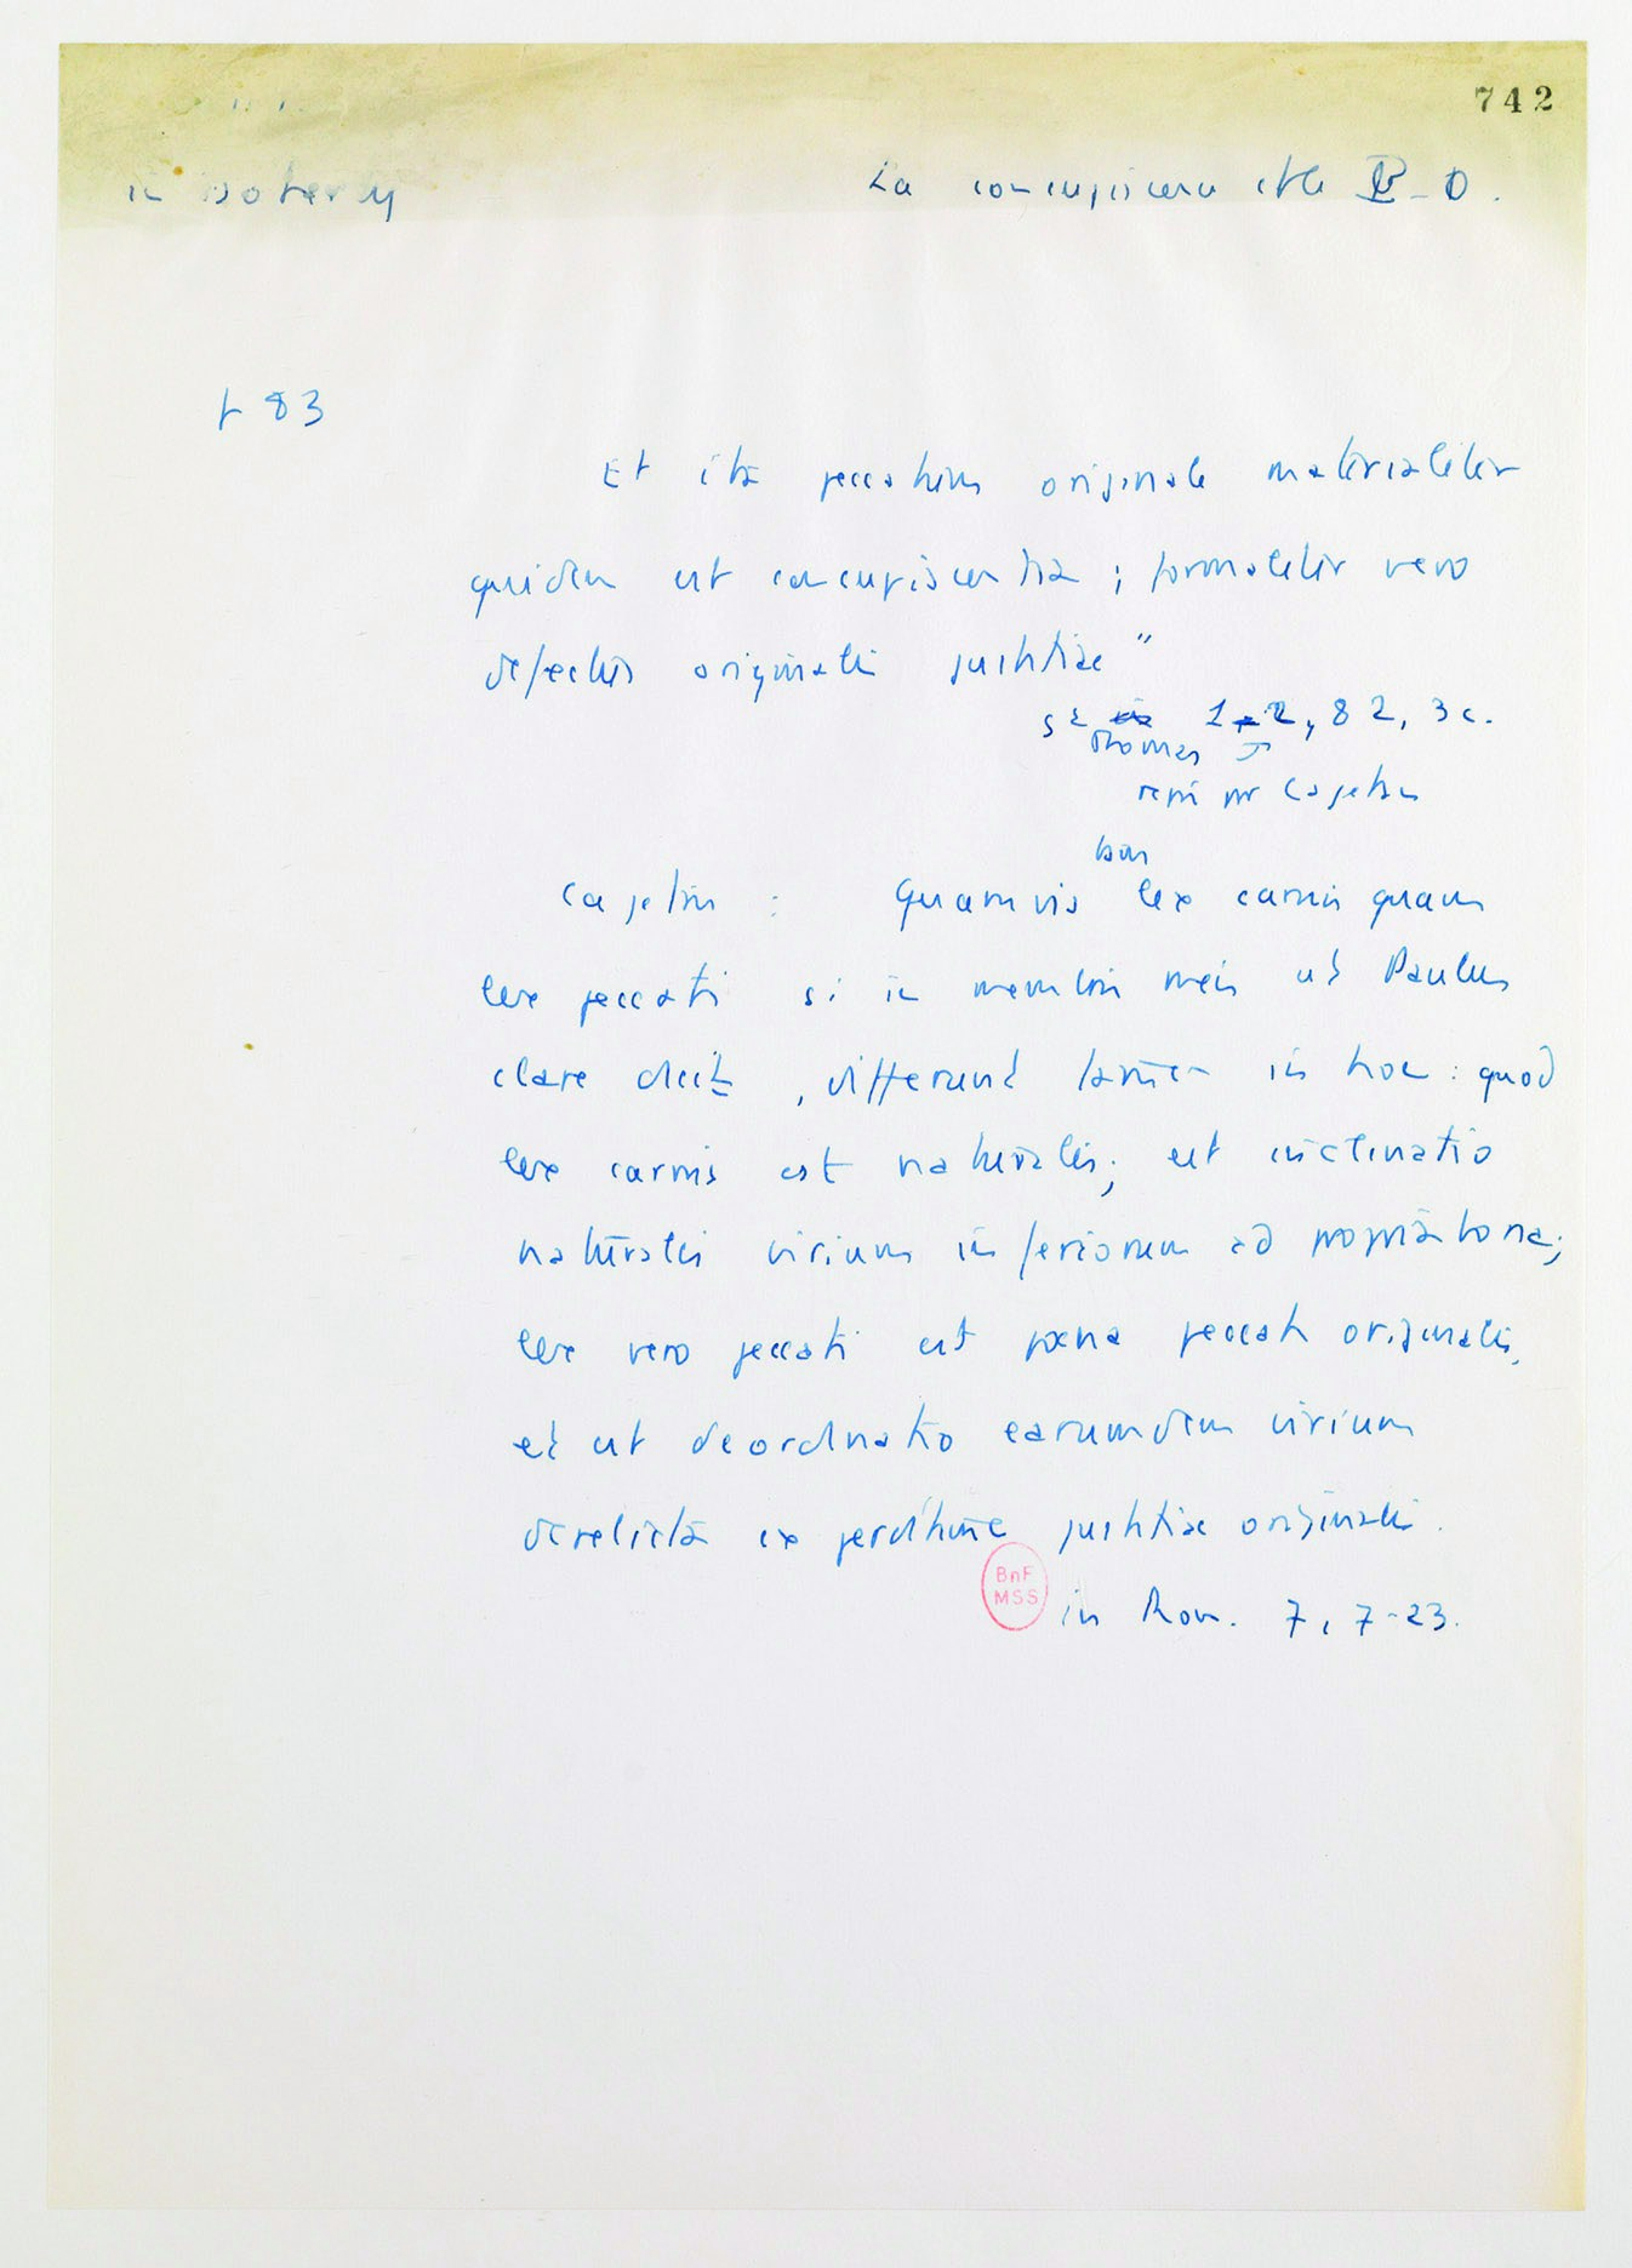 742
in Boterey
La concupiscence et le P-O.
p 83
Et ita peccatum originale materialiter
quidem est concupiscentia ; formaliter vero
defectus originalis justitiae "
St 1-2, 82, 3 c.
Thomas
repris par Cajetan
Cajetan : Quamvis lex carnis quam
lex peccati si in membris meis ut Paulus
clare dicit, differunt tamen in hoc : quod
lex carnis est naturalis; est inclinatio
naturalis virium inferiorum ad propria bona;
lex vero peccati est poena peccati originalis,
et est deordinatio earumdem virium
derelicta ex perditione justitiae originalis.
BnF
MSS
in Rom. 7, 7-23.